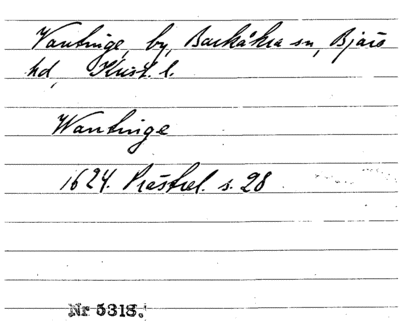 Vantinge, by, Barkåkra sn, Bjäre
hd, Krist. l.
Wantinge
1624. Prästrel. s. 28
Nr 5318.